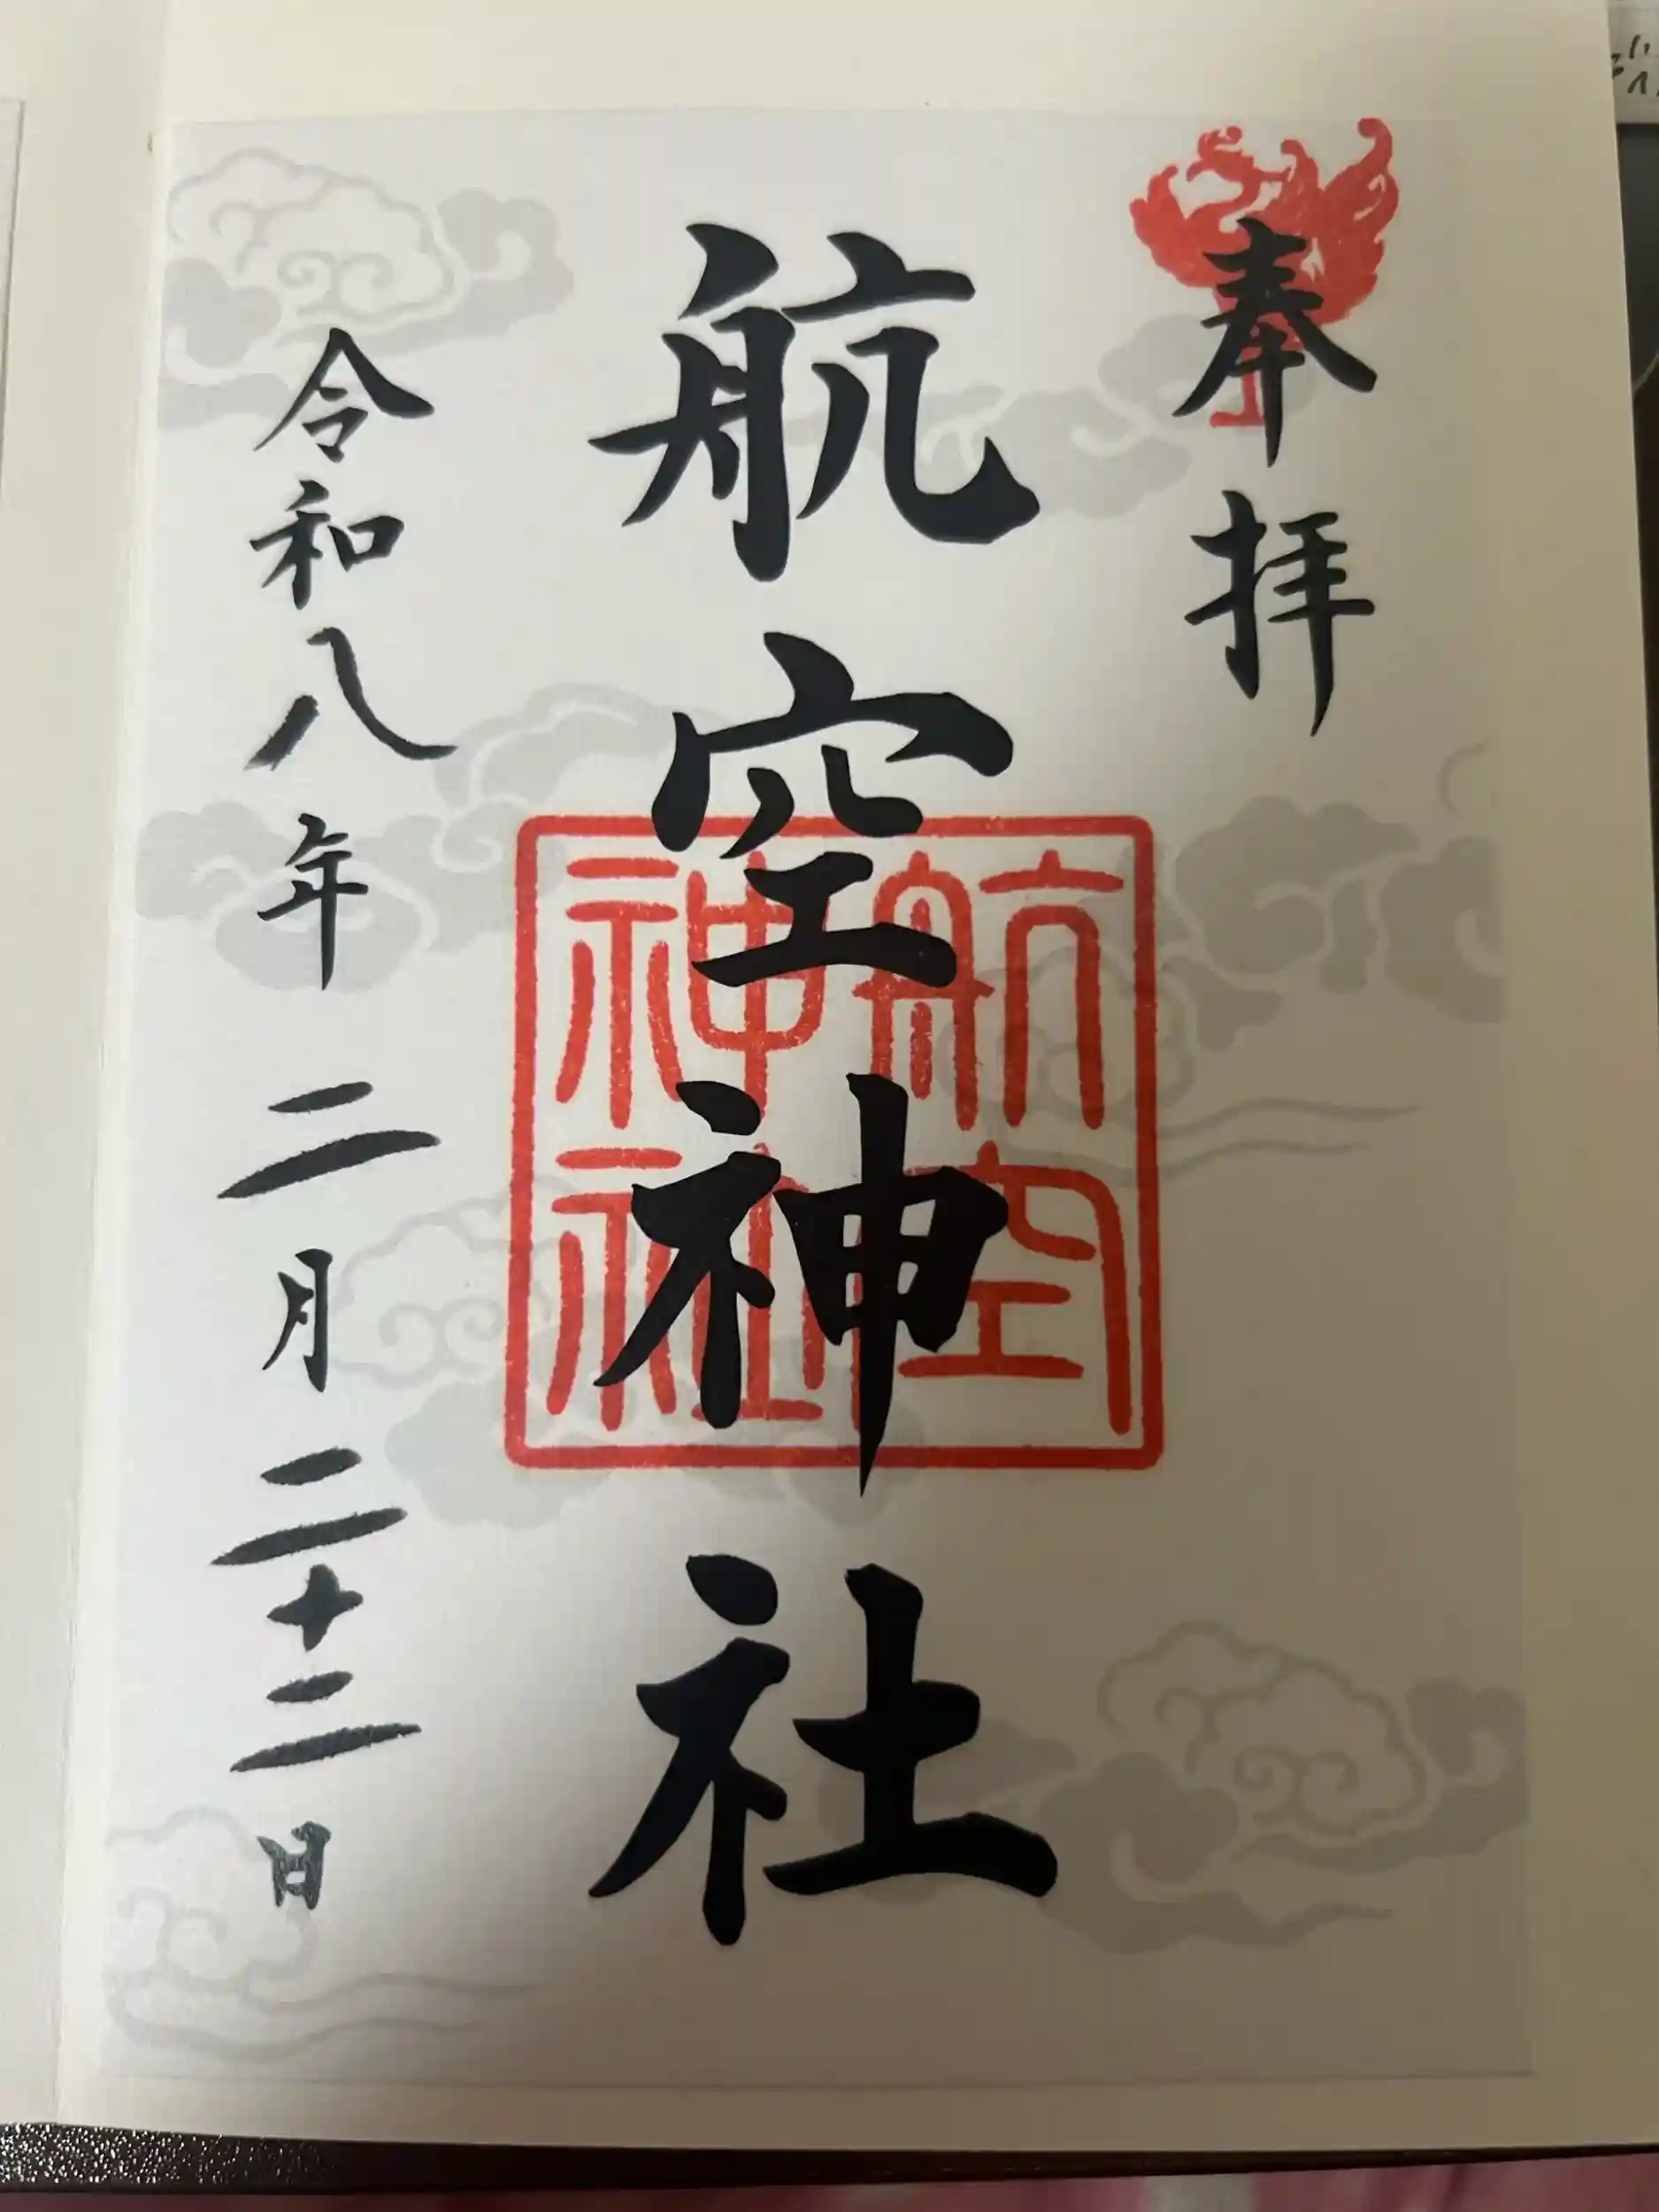 奉拝
航空神社
航空
神社
令和八年二月二十二日